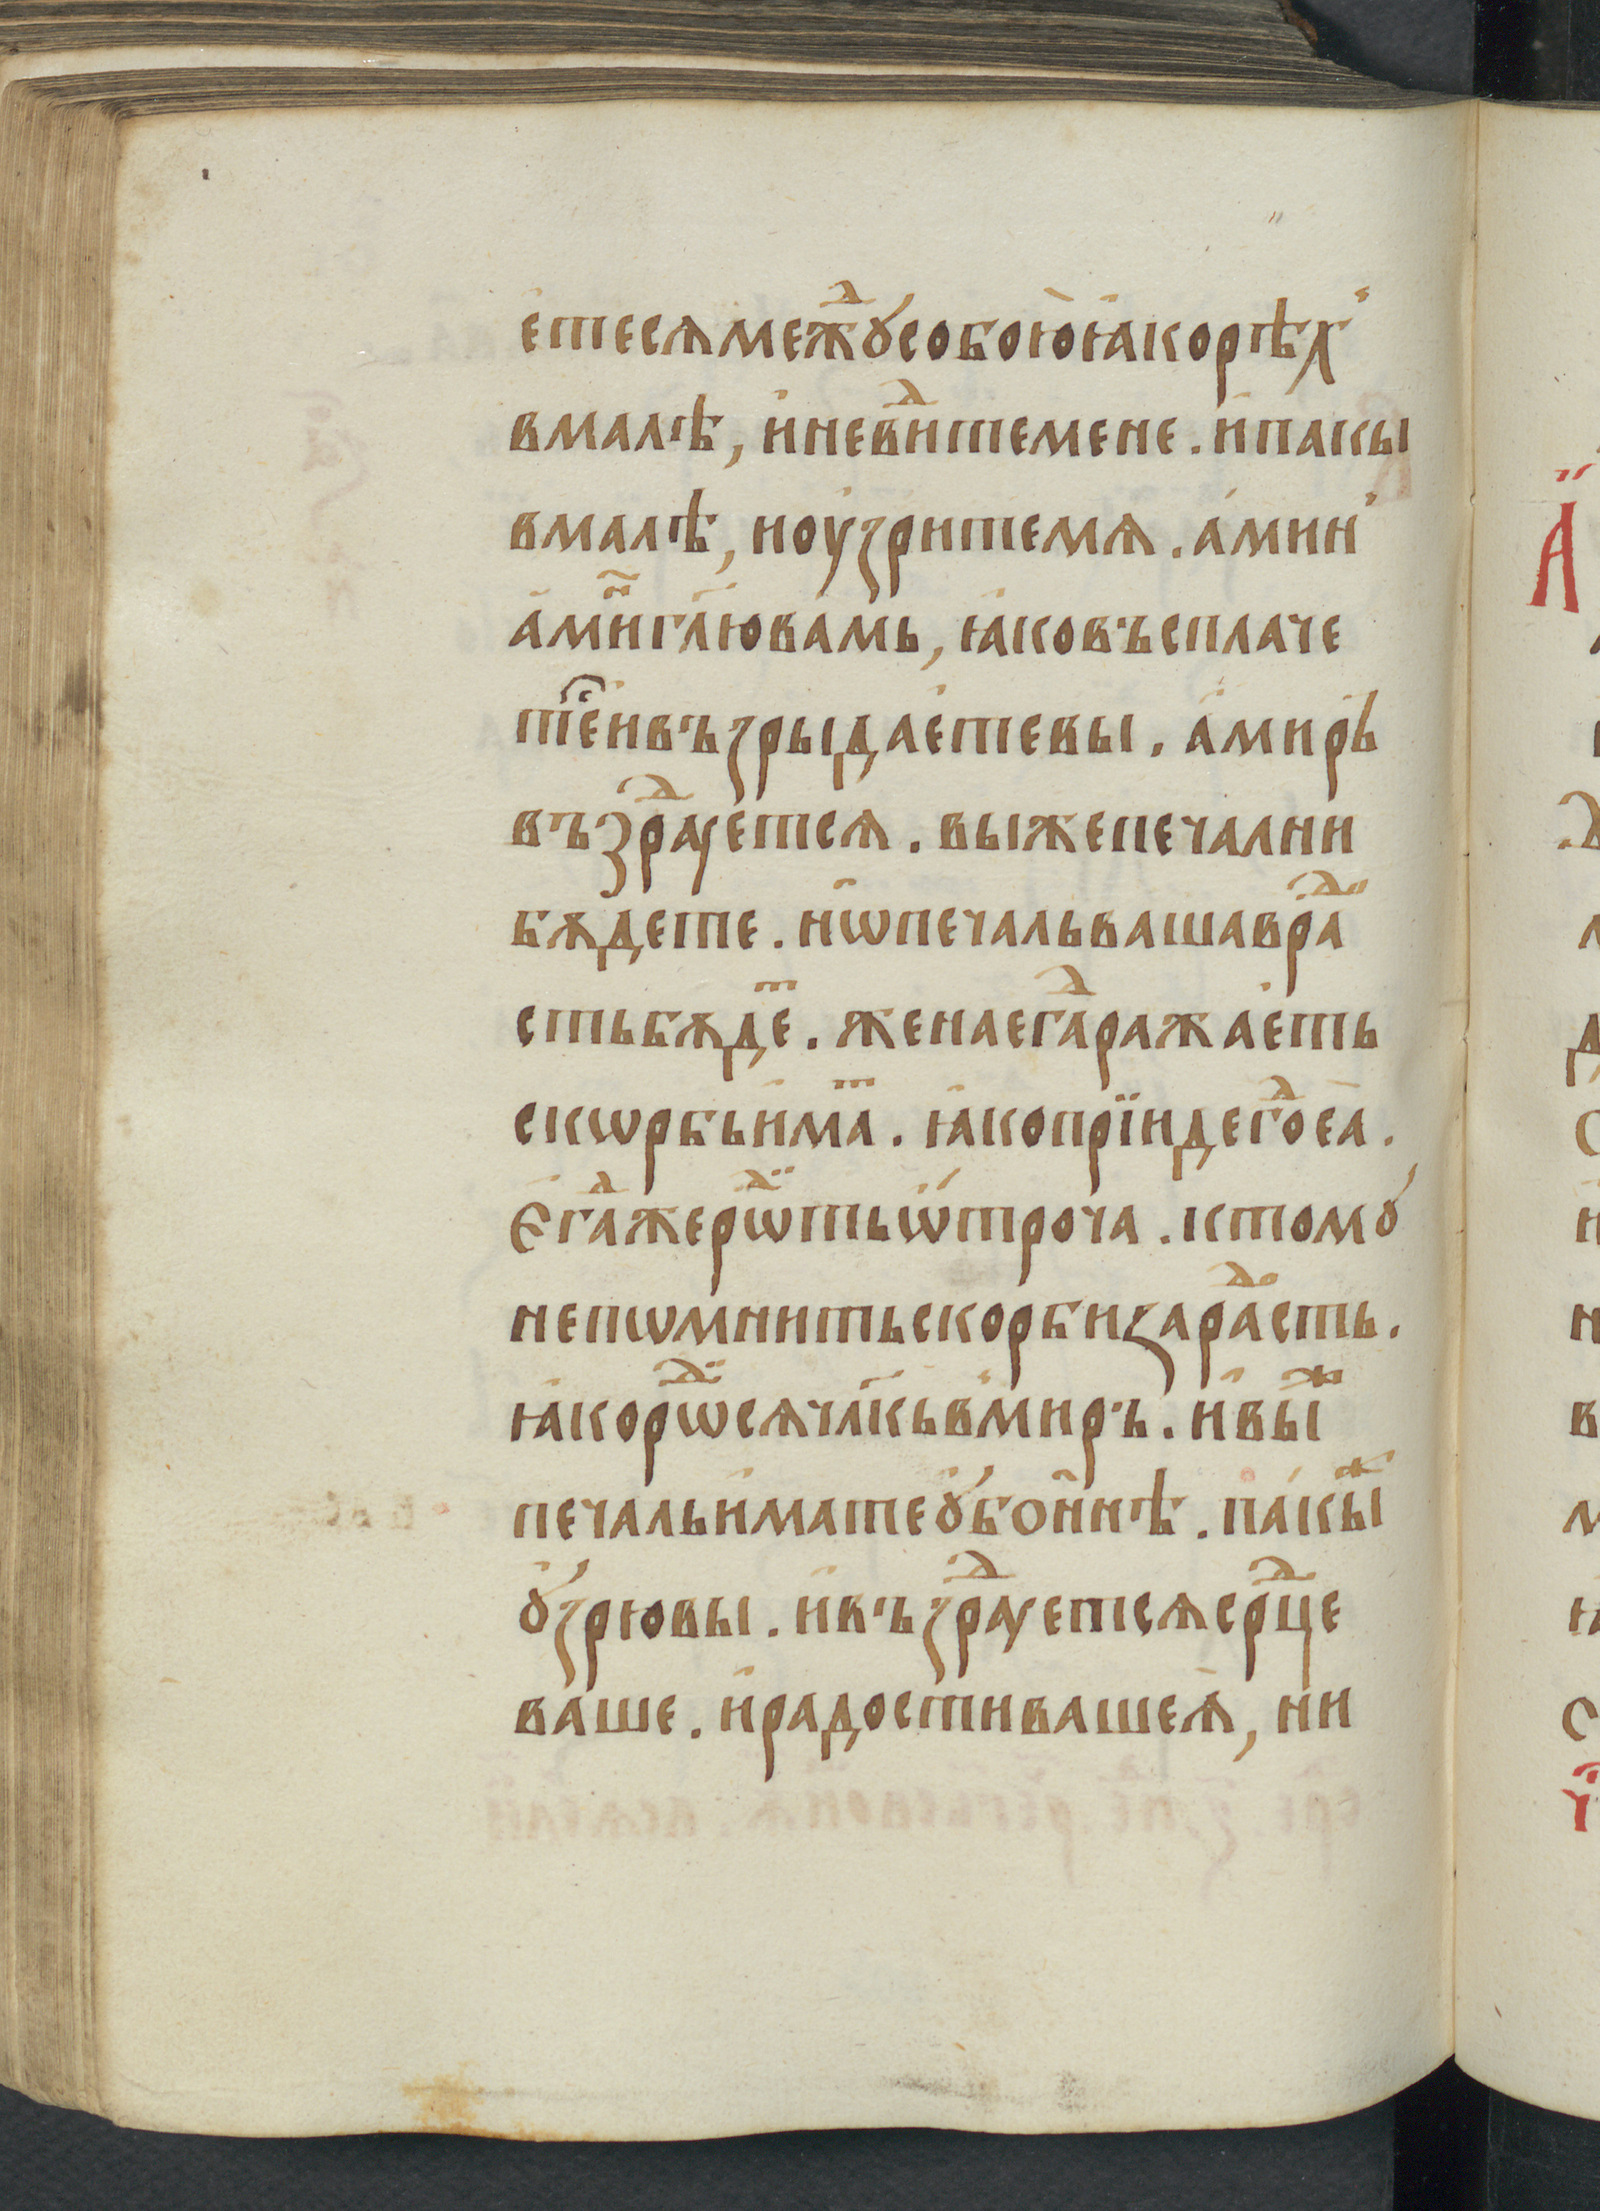 етесѧмежⷣꙋсобоюꙗкорѣх̾
вмалѣ, ꙇневиⷣтемене. ипакы
вмалѣ, ноузритемѧ. аминꙿ
амиⷩ҇гл҃ювамь, ꙗковъсплаче
теⷭ҇ивъзрыдаетевы. амирь
възраⷣуетсѧ. выжепечални
бѫдете. нѡпечальвашавраⷣⷪ
стьбѫдеⷮ. женаегаⷣражаеть
скѡрбьимаⷮ. ꙗкопрїидегоⷣеа.
Єгаⷣжерѡⷣтьѡтроча. ктомꙋ
непѡмнитьскорбизараⷣⷪсть.
ꙗкорѡⷣсѧчл҃кьвмиръ. ивыⷤ
печальиматеꙋбон҃нѣ. пакыⷤ
ꙋзрювы. ивъзраⷣуетсѧсерⷣце
ваше. ирадостивашеѧ, ни